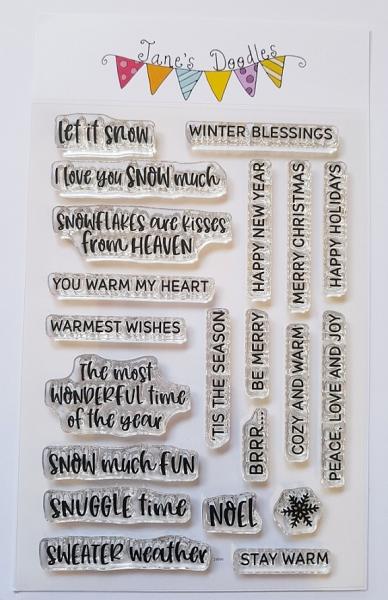 Jane's Doodles
let it snow
WINTER BLESSINGS
I love you SNOW much
SNOWFLAKES are kisses
from HEAVEN
YOU WARM MY HEART
WARMEST WISHES
The most
WONDERFUL time
of the year
SNOW much FUN
SNUGGLE time
SWEATER weather
HAPPY NEW YEAR
MERRY CHRISTMAS
HAPPY HOLIDAYS
'TIS THE SEASON
BE MERRY
BRRR...
COZY AND WARM
PEACE, LOVE AND JOY
NOEL
STAY WARM